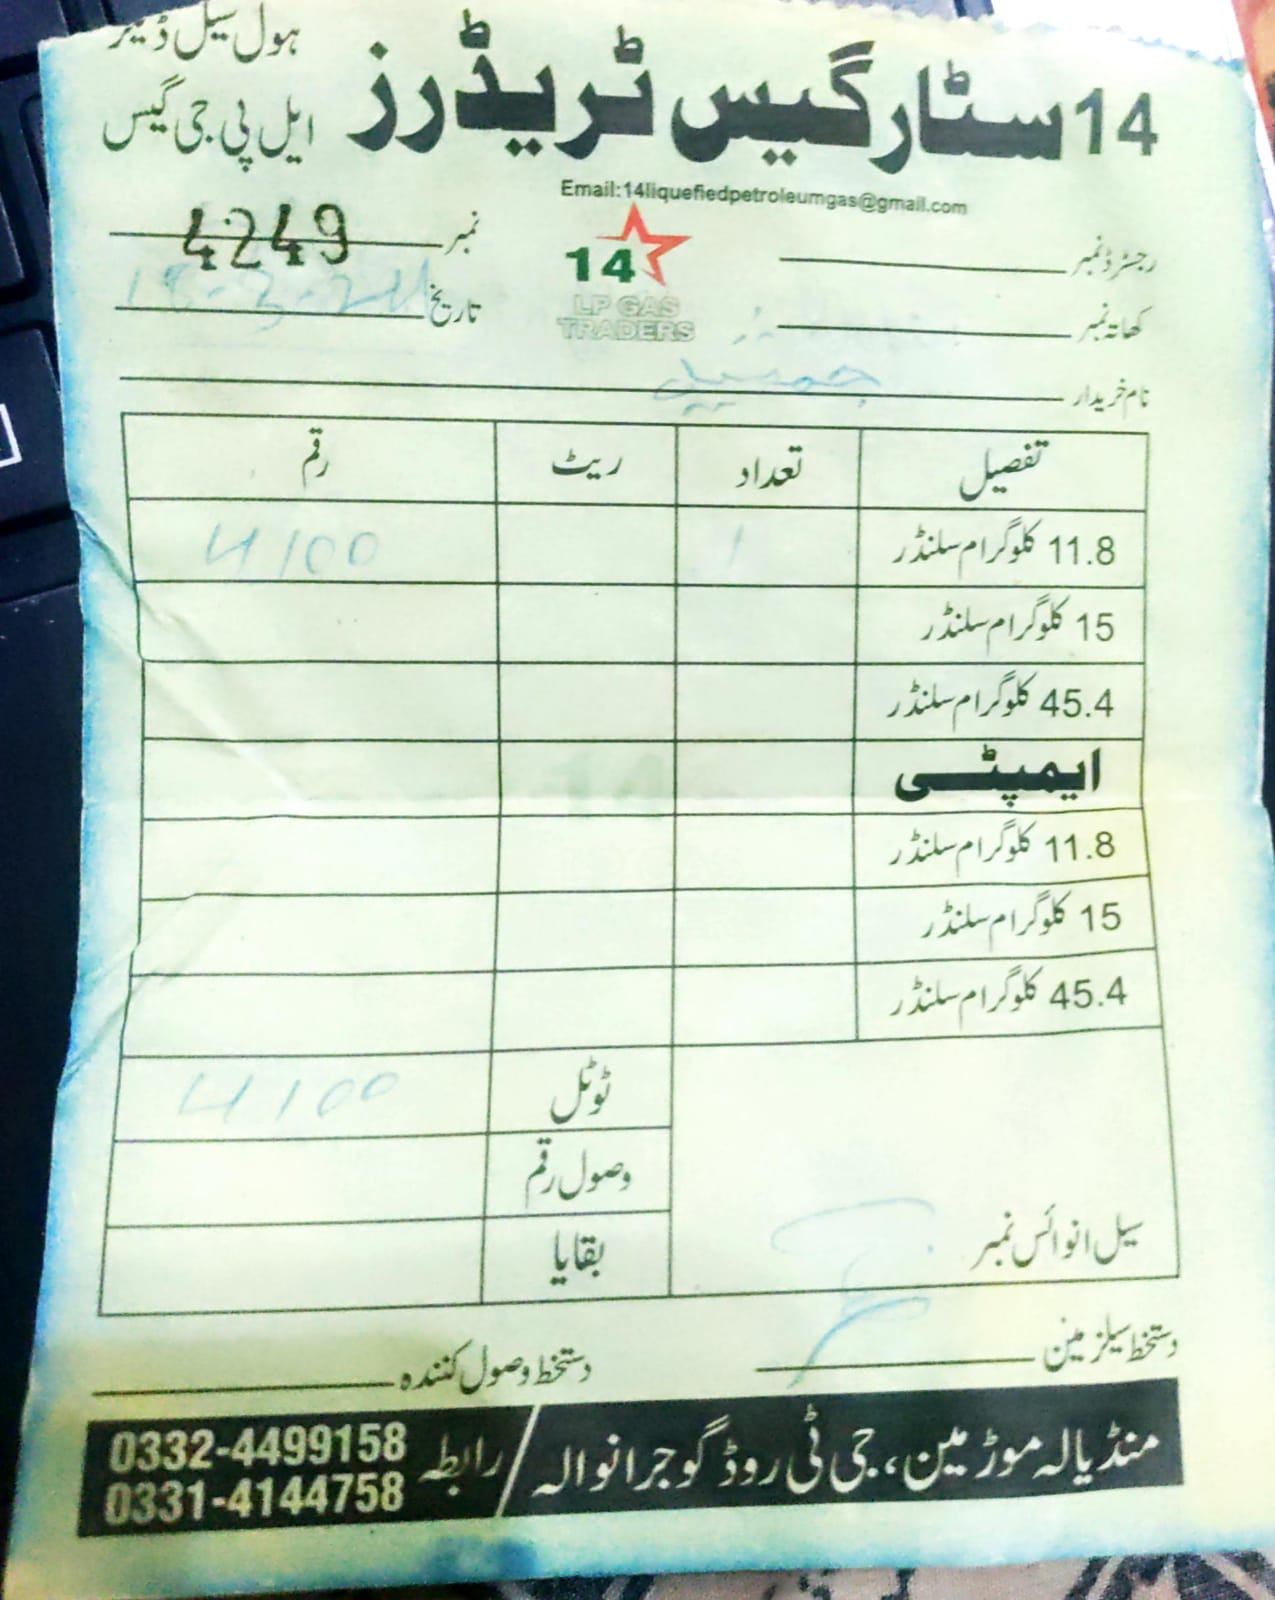 14 سٹار گیس ٹریڈرز
ہول سیل ڈیلر
ایل پی جی گیس
Email:14liquefiedpetroleumgas@gmail.com
رجسٹرڈ نمبر
نمبر 4249
14
LP GAS
TRADERS
کھاتہ نمبر
تاریخ
نام خریدار
تفصیل تعداد ریٹ رقم
11.8 کلوگرام سلنڈر 1 4100
15 کلوگرام سلنڈر
45.4 کلوگرام سلنڈر
ایمپٹی
11.8 کلوگرام سلنڈر
15 کلوگرام سلنڈر
45.4 کلوگرام سلنڈر
ٹوٹل 4100
وصول رقم
سیل انوائس نمبر
بقایا
دستخط سیلز مین
دستخط وصول کنندہ
منڈیالہ موڑ مین، جی ٹی روڈ گوجرانوالہ
رابطہ
0332-4499158
0331-4144758